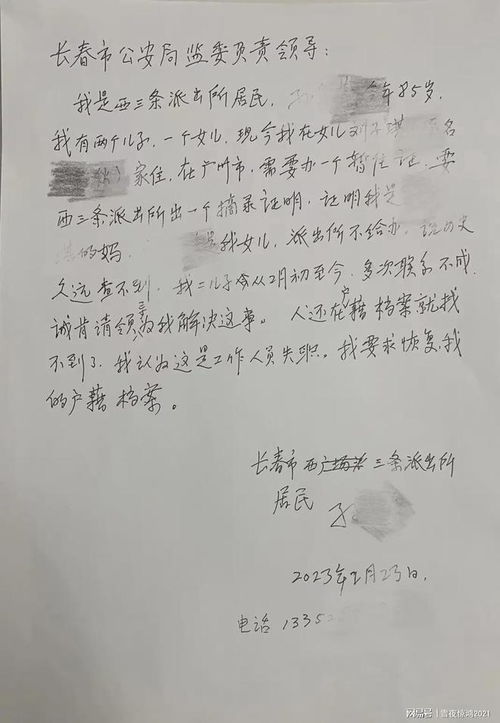 长春市公安局监委负责领导:
我是西三条派出所居民, 今年85岁,
我有两个儿子,一个女儿,现今我在女儿 名
家住,在广州市,需要办一个暂住证,要
西三条派出所出一个摘录证明,证明我是
的妈. 是我女儿,派出所不给办,说历史
久远查不到,我二儿子从2月初至今,多次联系不成,
诚肯请领导为我解决这事。人还在户籍档案就找
不到了,我认为这是工作人员失职。我要求恢复我
的户籍档案。
长春市西三条派出所
居民
2023年2月23日,
电话 1335
网易号 | 雪夜惊鸿2021